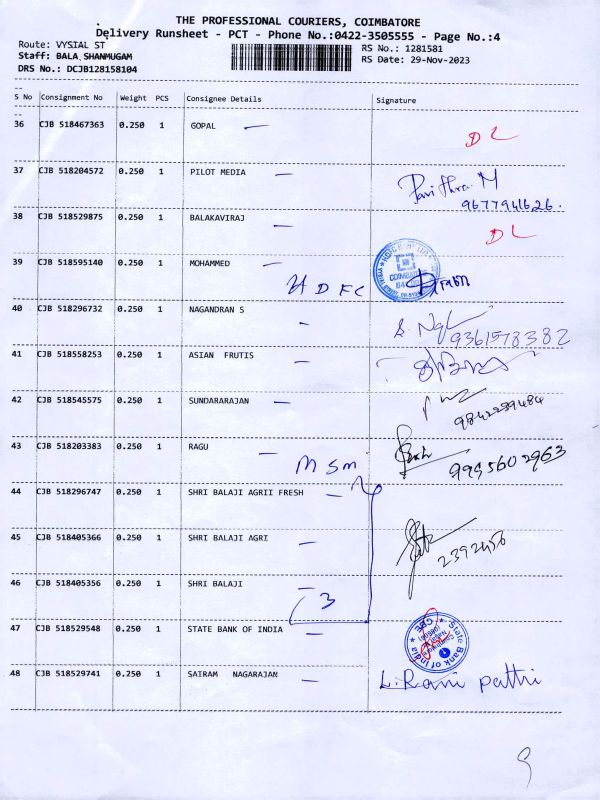 THE PROFESSIONAL COURIERS, COIMBATORE
Delivery Runsheet - PCT - Phone No.:0422-3505555 - Page No.:4
Route: VYSIAL ST
RS No.: 1281581
Staff: BALA SHANMUGAM
RS Date: 29-Nov-2023
DRS No.: DCJB128158104
S No Consignment No Weight PCS Consignee Details Signature
36 CJB 518467363 0.250 1 GOPAL DL
37 CJB 518204572 0.250 1 PILOT MEDIA Pavithra M
9677941626.
38 CJB 518529875 0.250 1 BALAKAVIRAJ DL
39 CJB 518595140 0.250 1 MOHAMMED
HDFC COIMBATORE
40 CJB 518296732 0.250 1 NAGANDRAN S
9361578382
41 CJB 518558253 0.250 1 ASIAN FRUTIS
42 CJB 518545575 0.250 1 SUNDARARAJAN
9842239484
43 CJB 518203383 0.250 1 RAGU
MSM 9995602963
44 CJB 518296747 0.250 1 SHRI BALAJI AGRII FRESH
45 CJB 518405366 0.250 1 SHRI BALAJI AGRI
2392456
46 CJB 518405356 0.250 1 SHRI BALAJI
3
47 CJB 518529548 0.250 1 STATE BANK OF INDIA State Bank of India
CBE
48 CJB 518529741 0.250 1 SAIRAM NAGARAJAN L. Rani Pathri
9